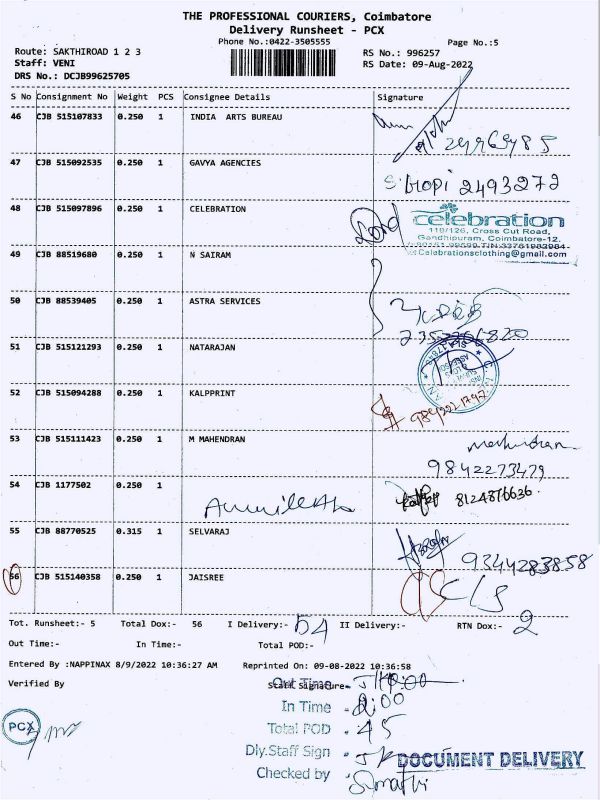 THE PROFESSIONAL COURIERS, Coimbatore
Delivery Runsheet - PCX
Phone No.:0422-3505555
Page No.:5
Route: SAKTHIROAD 1 2 3
RS No.: 996257
Staff: VENI
RS Date: 09-Aug-2022
DRS No.: DCJB99625705
S No Consignment No Weight PCS Consignee Details Signature
46 CJB 515107833 0.250 1 INDIA ARTS BUREAU
47 CJB 515092535 0.250 1 GAVYA AGENCIES
S. Gopi 2493272
48 CJB 515097896 0.250 1 CELEBRATION
celebration
119/126, Cross Cut Road,
Gandhipuram, Coimbatore-12.
Celebrationsclothing@gmail.com
49 CJB 88519680 0.250 1 N SAIRAM
50 CJB 88539405 0.250 1 ASTRA SERVICES
51 CJB 515121293 0.250 1 NATARAJAN
52 CJB 515094288 0.250 1 KALPPRINT
53 CJB 515111423 0.250 1 M MAHENDRAN
9842273479
54 CJB 1177502 0.250 1
8124876636
55 CJB 88770525 0.315 1 SELVARAJ
9344283858
56 CJB 515140358 0.250 1 JAISREE
C/S
Tot. Runsheet:- 5 Total Dox:- 56 I Delivery:- 54 II Delivery:- RTN Dox:- 2
Out Time:- In Time:- Total POD:-
Entered By :NAPPINAX 8/9/2022 10:36:27 AM Reprinted On: 09-08-2022 10:36:58
Verified By Staff Signature-
Out Time
In Time
Total POD - 45
Dly.Staff Sign
DOCUMENT DELIVERY
Checked by
PCX